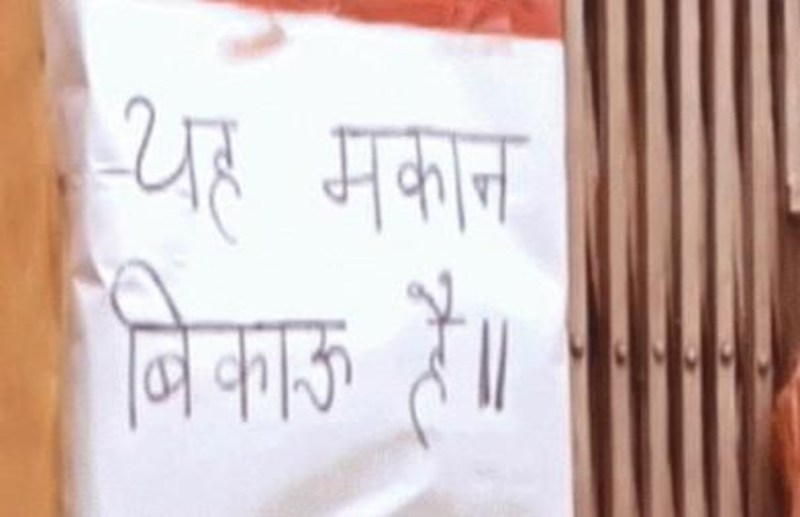 यह मकान
बिकाऊ है॥